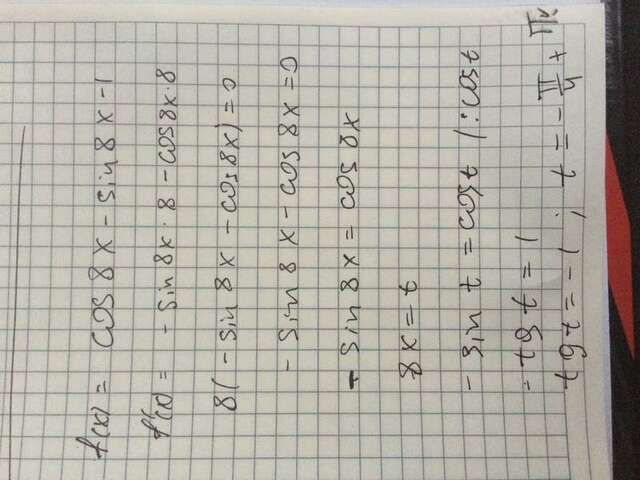 f(x) = cos 8x - sin 8x - 1
f'(x) = - sin 8x · 8 - cos 8x · 8
8(- sin 8x - cos 8x) = 0
- sin 8x - cos 8x = 0
- sin 8x = cos 8x
8x = t
- sin t = cos t | : cos t
- tg t = 1
tg t = -1 ; t = - π/4 + πn